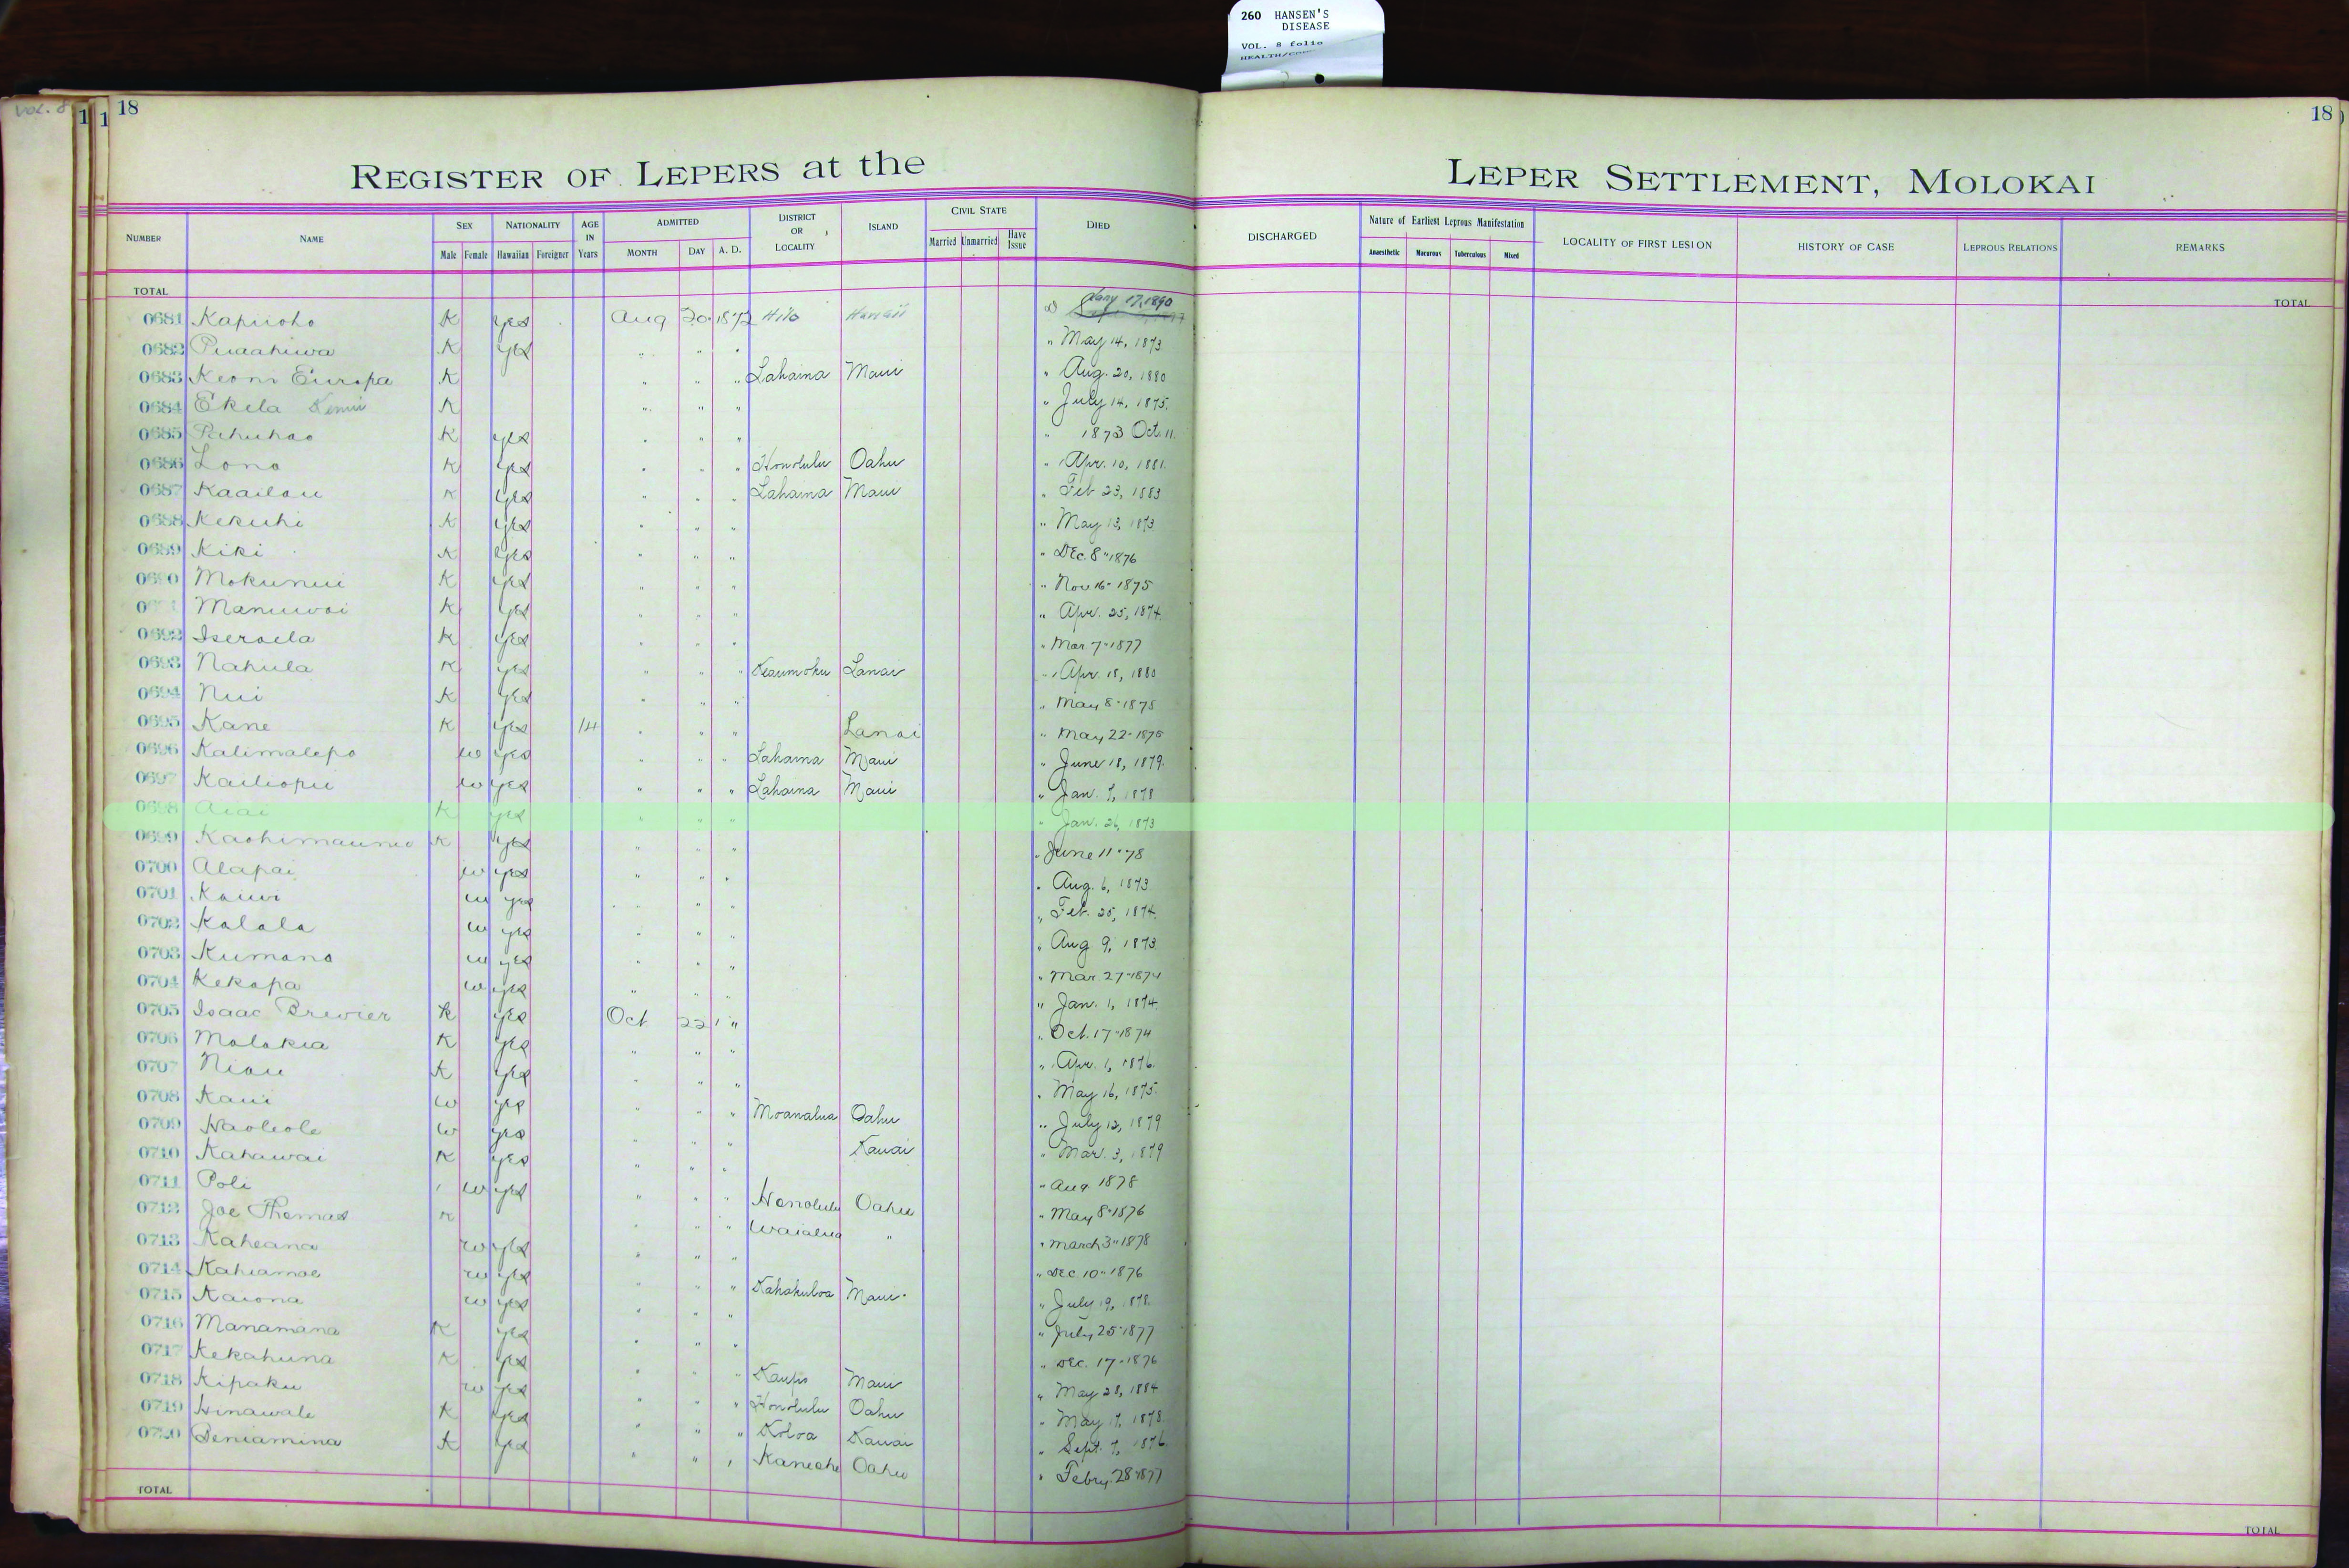 260 HANSEN'S
DISEASE
VOL. 8 folio
VOL. 8
18
18
REGISTER OF LEPERS at the LEPER SETTLEMENT, MOLOKAI
NUMBER NAME SEX NATIONALITY AGE IN Years ADMITTED DISTRICT OR LOCALITY ISLAND CIVIL STATE DIED DISCHARGED Nature of Earliest Leprous Manifestation LOCALITY OF FIRST LESION HISTORY OF CASE LEPROUS RELATIONS REMARKS
Male Female Hawaiian Foreigner MONTH DAY A. D. Married Unmarried Have Issue Anaesthetic Macurous Tuberculous Mixed
TOTAL TOTAL
0681 Kapuoho K yes Aug 20 1872 Hilo Hawaii Jany 17, 1890
0682 Puaahiwa K yes " " " " May 14, 1873
0683 Keoni Europa K " " " Lahaina Maui " Aug. 20, 1880
0684 Ekela K " " " " July 14, 1875.
0685 Pahuhao K yes " " " " 1873 Oct. 11.
0686 Lono K yes " " " Honolulu Oahu " Apr. 10, 1881.
0687 Kaailau K yes " " " Lahaina Maui " Feb 23, 1883
0688 Kekuhi K yes " " " " May 13, 1873
0689 Kiki K yes " " " " Dec. 8" 1876
0690 Mokunui K yes " " " " Nov 16- 1875
Manuwai K yes " " " " Apr. 25, 1874.
0692 Iseraela K yes " " " " Mar 7" 1877
0693 Nahula K yes " " " Keaumoku Lanai " Apr. 18, 1880
0694 Nui K yes " " " " May 8" 1875
0695 Kane K yes 14 " " " Lanai " May 22- 1875
0696 Kalimalepo w yes " " " Lahaina Maui " June 18, 1879.
0697 Kailiopu w yes " " " Lahaina Maui " Jan. 7, 1878
0698 Aiai K yes " " " " Jan. 26, 1873
0699 K yes " " " " June 11" 78
0700 Alapai w yes " " " " Aug. 6, 1873
0701 Kauwi w yes " " " " Feb. 25, 1874.
0702 Kalala w yes " " " " Aug 9, 1873
0703 Kumano w yes " " " " Mar 27" 1874
0704 Kekapa w yes " " " " Jan. 1, 1874.
0705 Isaac Brewier K yes Oct 22 " " Oct. 17" 1874
0706 Molokia K yes " " " " Apr. 1, 1876.
0707 Niau K yes " " " " May 16, 1875.
0708 Kaui w yes " " " Moanalua Oahu " July 12, 1879
0709 Haoleole w yes " " " Kauai " Mar. 3, 1879
0710 Kahawai K yes " " " " Aug 1878
0711 Poli w yes " " " Honolulu Oahu " May 8" 1876
0712 Joe Thomas K " " " Waialua " " March 3" 1878
0713 Kaheana w yes " " " " Dec. 10" 1876
0714 Kahiamoe w yes " " " Kahakuloa Maui " July 19, 1878.
0715 Kaiona w yes " " " " July 25" 1877
0716 Manamana K yes " " " " Dec. 17- 1876
0717 Kekahuna K yes " " " Kaupo Maui " May 28, 1884
0718 Kipaku w yes " " " Honolulu Oahu " May 17, 1878.
0719 Hinawale K yes " " " Koloa Kauai " Sept. 7, 1876.
0720 Beniamina K yes " " " Kaneohe Oahu " Febry. 28" 1877
TOTAL TOTAL